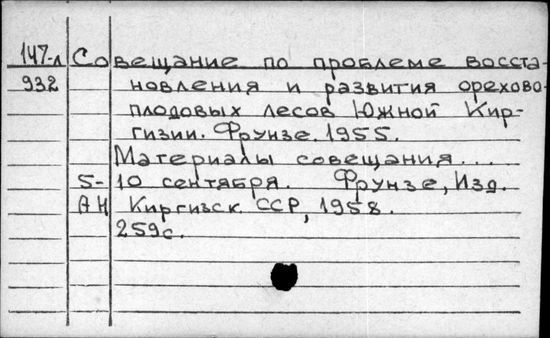 147-л Совещание по проблеме восста-
932 новления и развития орехово-
плодовых лесов Южной Кир-
гизии. Фрунзе. 1955.
Материалы совещания...
5-10 сентября. Фрунзе, Изд.
АН Киргизск. ССР, 1958.
259с.